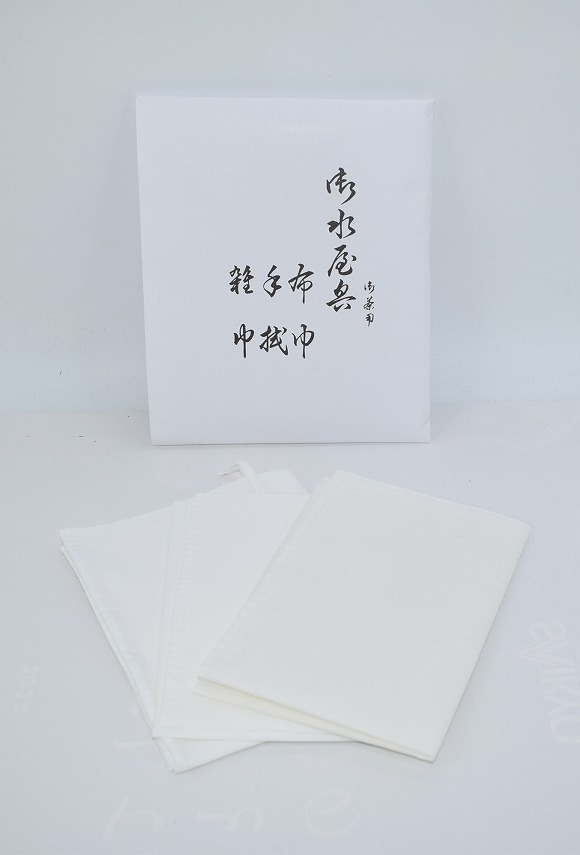 御茶用
御水屋具
布巾
手拭
雑巾